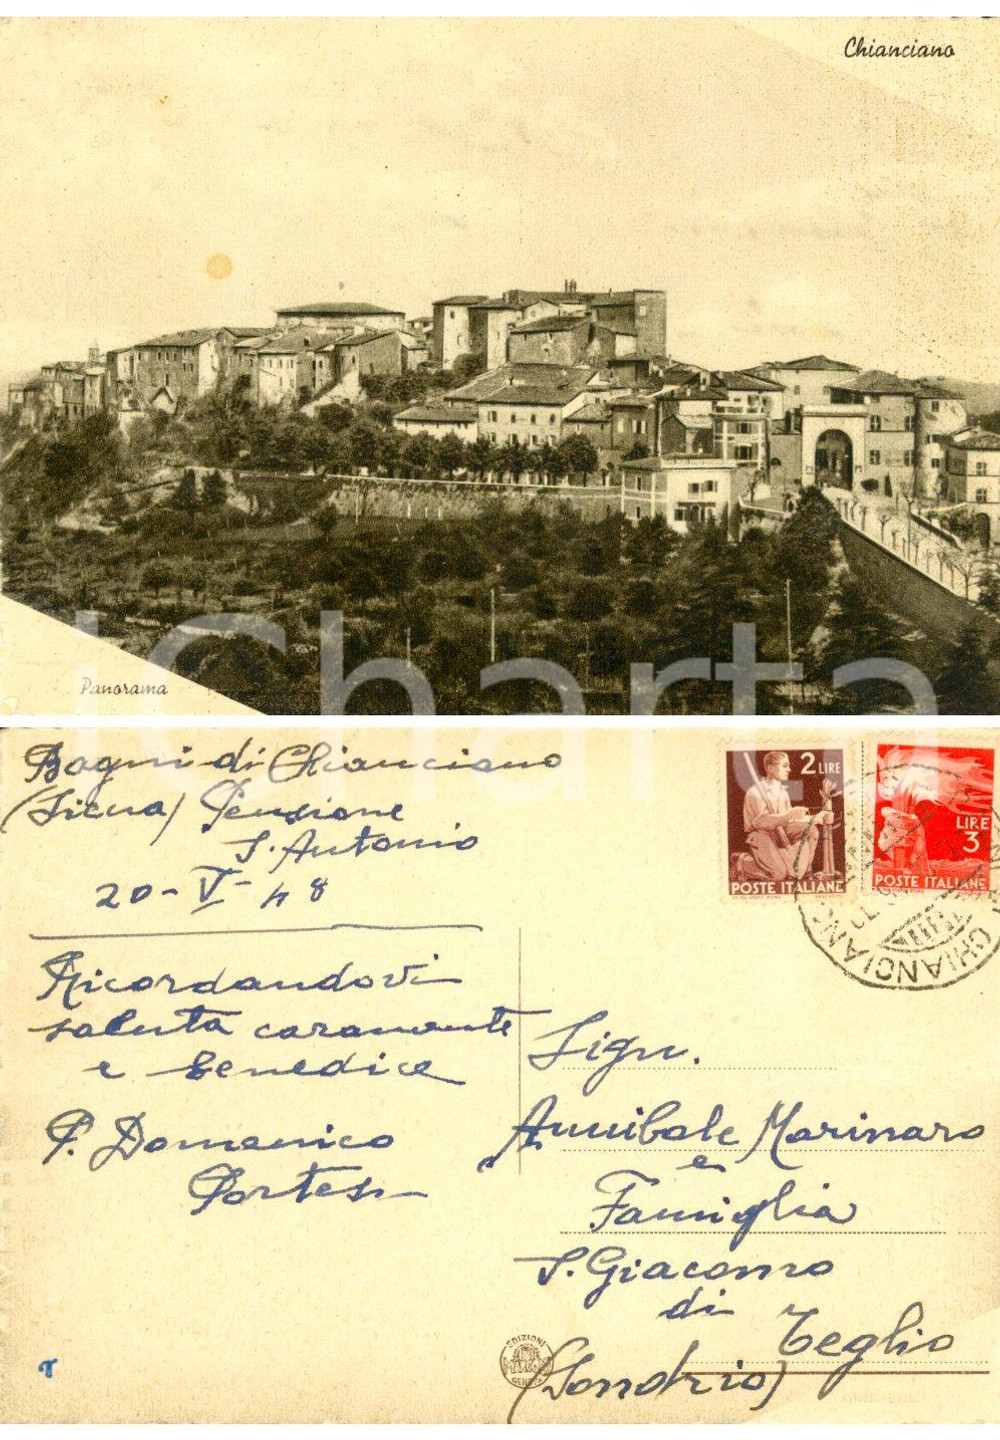 Chianciano
Panorama
iCharta
Bagni di Chianciano
(Siena) Pensione
S. Antonio
20-V-48
Ricordandovi
saluta caramente
e benedice
P. Domenico
Cortesi
2 LIRE
POSTE ITALIANE
LIRE
3
POSTE ITALIANE
CHIANCIANO
Sign.
Annibale Marinaro
e
Famiglia
S. Giacomo
di
Teglio
(Sondrio)
EDIZIONI